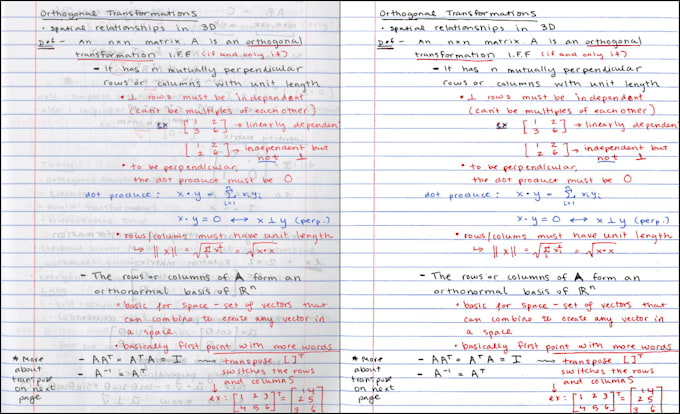 Orthogonal Transformations
• spatial relationships in 3D
Def - An nxn matrix A is an orthogonal
transformation I.F.F (if and only if)
- It has n mutually perpendicular
rows or columns with unit length
• ⊥ rows must be independent
(can't be multiples of each other)
ex [1 2 → linearly dependen
3 6]
[1 2 → independent but
2 6] not ⊥
• to be perpendicular,
the dot produce must be 0
dot produce: x • y = Σ xiyi
x • y = 0 ↔ x ⊥ y (perp.)
• rows/colums must have unit length
↳ ||x|| = √Σxi² = √x•x
- The rows or columns of A form an
orthonormal basis of ℝⁿ
• basic for space - set of vectors that
can combine to create any vector in
a space
• basically first point with more words
* More - AAᵀ = AᵀA = I → transpose [ ]ᵀ
about - A⁻¹ = Aᵀ switches the rows
transpose and columns
on next
page ex: [1 2 3 ]ᵀ = [1 4
4 5 6] 2 5
3 6
Orthogonal Transformations
• spatial relationships in 3D
Def - An nxn matrix A is an orthogonal
transformation I.F.F (if and only if)
- It has n mutually perpendicular
rows or columns with unit length
• ⊥ rows must be independent
(can't be multiples of each other)
ex [1 2 → linearly dependen
3 6]
[1 2 → independent but
2 6] not ⊥
• to be perpendicular,
the dot produce must be 0
dot produce: x • y = Σ xiyi
x • y = 0 ↔ x ⊥ y (perp.)
• rows/colums must have unit length
↳ ||x|| = √Σxi² = √x•x
- The rows or columns of A form an
orthonormal basis of ℝⁿ
• basic for space - set of vectors that
can combine to create any vector in
a space
• basically first point with more words
* More - AAᵀ = AᵀA = I → transpose [ ]ᵀ
about - A⁻¹ = Aᵀ switches the rows
transpose and columns
on next
page ex: [1 2 3 ]ᵀ = [1 4
4 5 6] 2 5
3 6